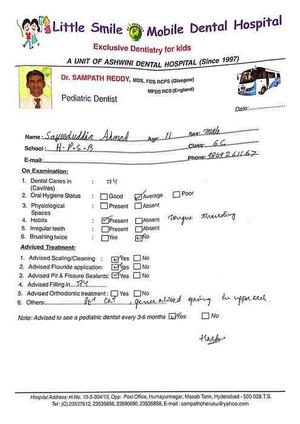 Little Smile Mobile Dental Hospital
Exclusive Dentistry for kids
A UNIT OF ASHWINI DENTAL HOSPITAL (Since 1997)
Dr. SAMPATH REDDY, MDS, FDS RCPS (Glasgow)
MFDS RCS (England)
Pediatric Dentist
Date:
Name: Sayeeduddin Ahmed Age: 11 Sex: male
School: H.P.S-B Class: 6C
E-mail: Phone:
On Examination:
1. Dental Caries in (Cavities) :
2. Oral Hygiene Status : Good Average Poor
3. Physiological Spaces : Present Absent
4. Habits : Present Absent Tongue thrusting
5. Irregular teeth : Present Absent
6. Brushing twice : Yes No
Adviced Treatment:
1. Advised Scaling/Cleaning : Yes No
2. Advised Flouride application: Yes No
3. Advised Pit & Fissure Sealants: Yes No
4. Advised Filling in
5. Advised Orthodontic treatment: Yes No
6. Others: generalised spacing in upper
Note: Advised to see a pediatric dentist every 3-6 months Yes No
Hospital Address: H.No. 10-3-304/13, Opp: Post Office, Humayunnagar, Masab Tank, Hyderabad - 500 028 T.S.
Tel: (C) 23537612, 23535658, 23590690, 23535858, E-mail : sampathcheruku@yahoo.com